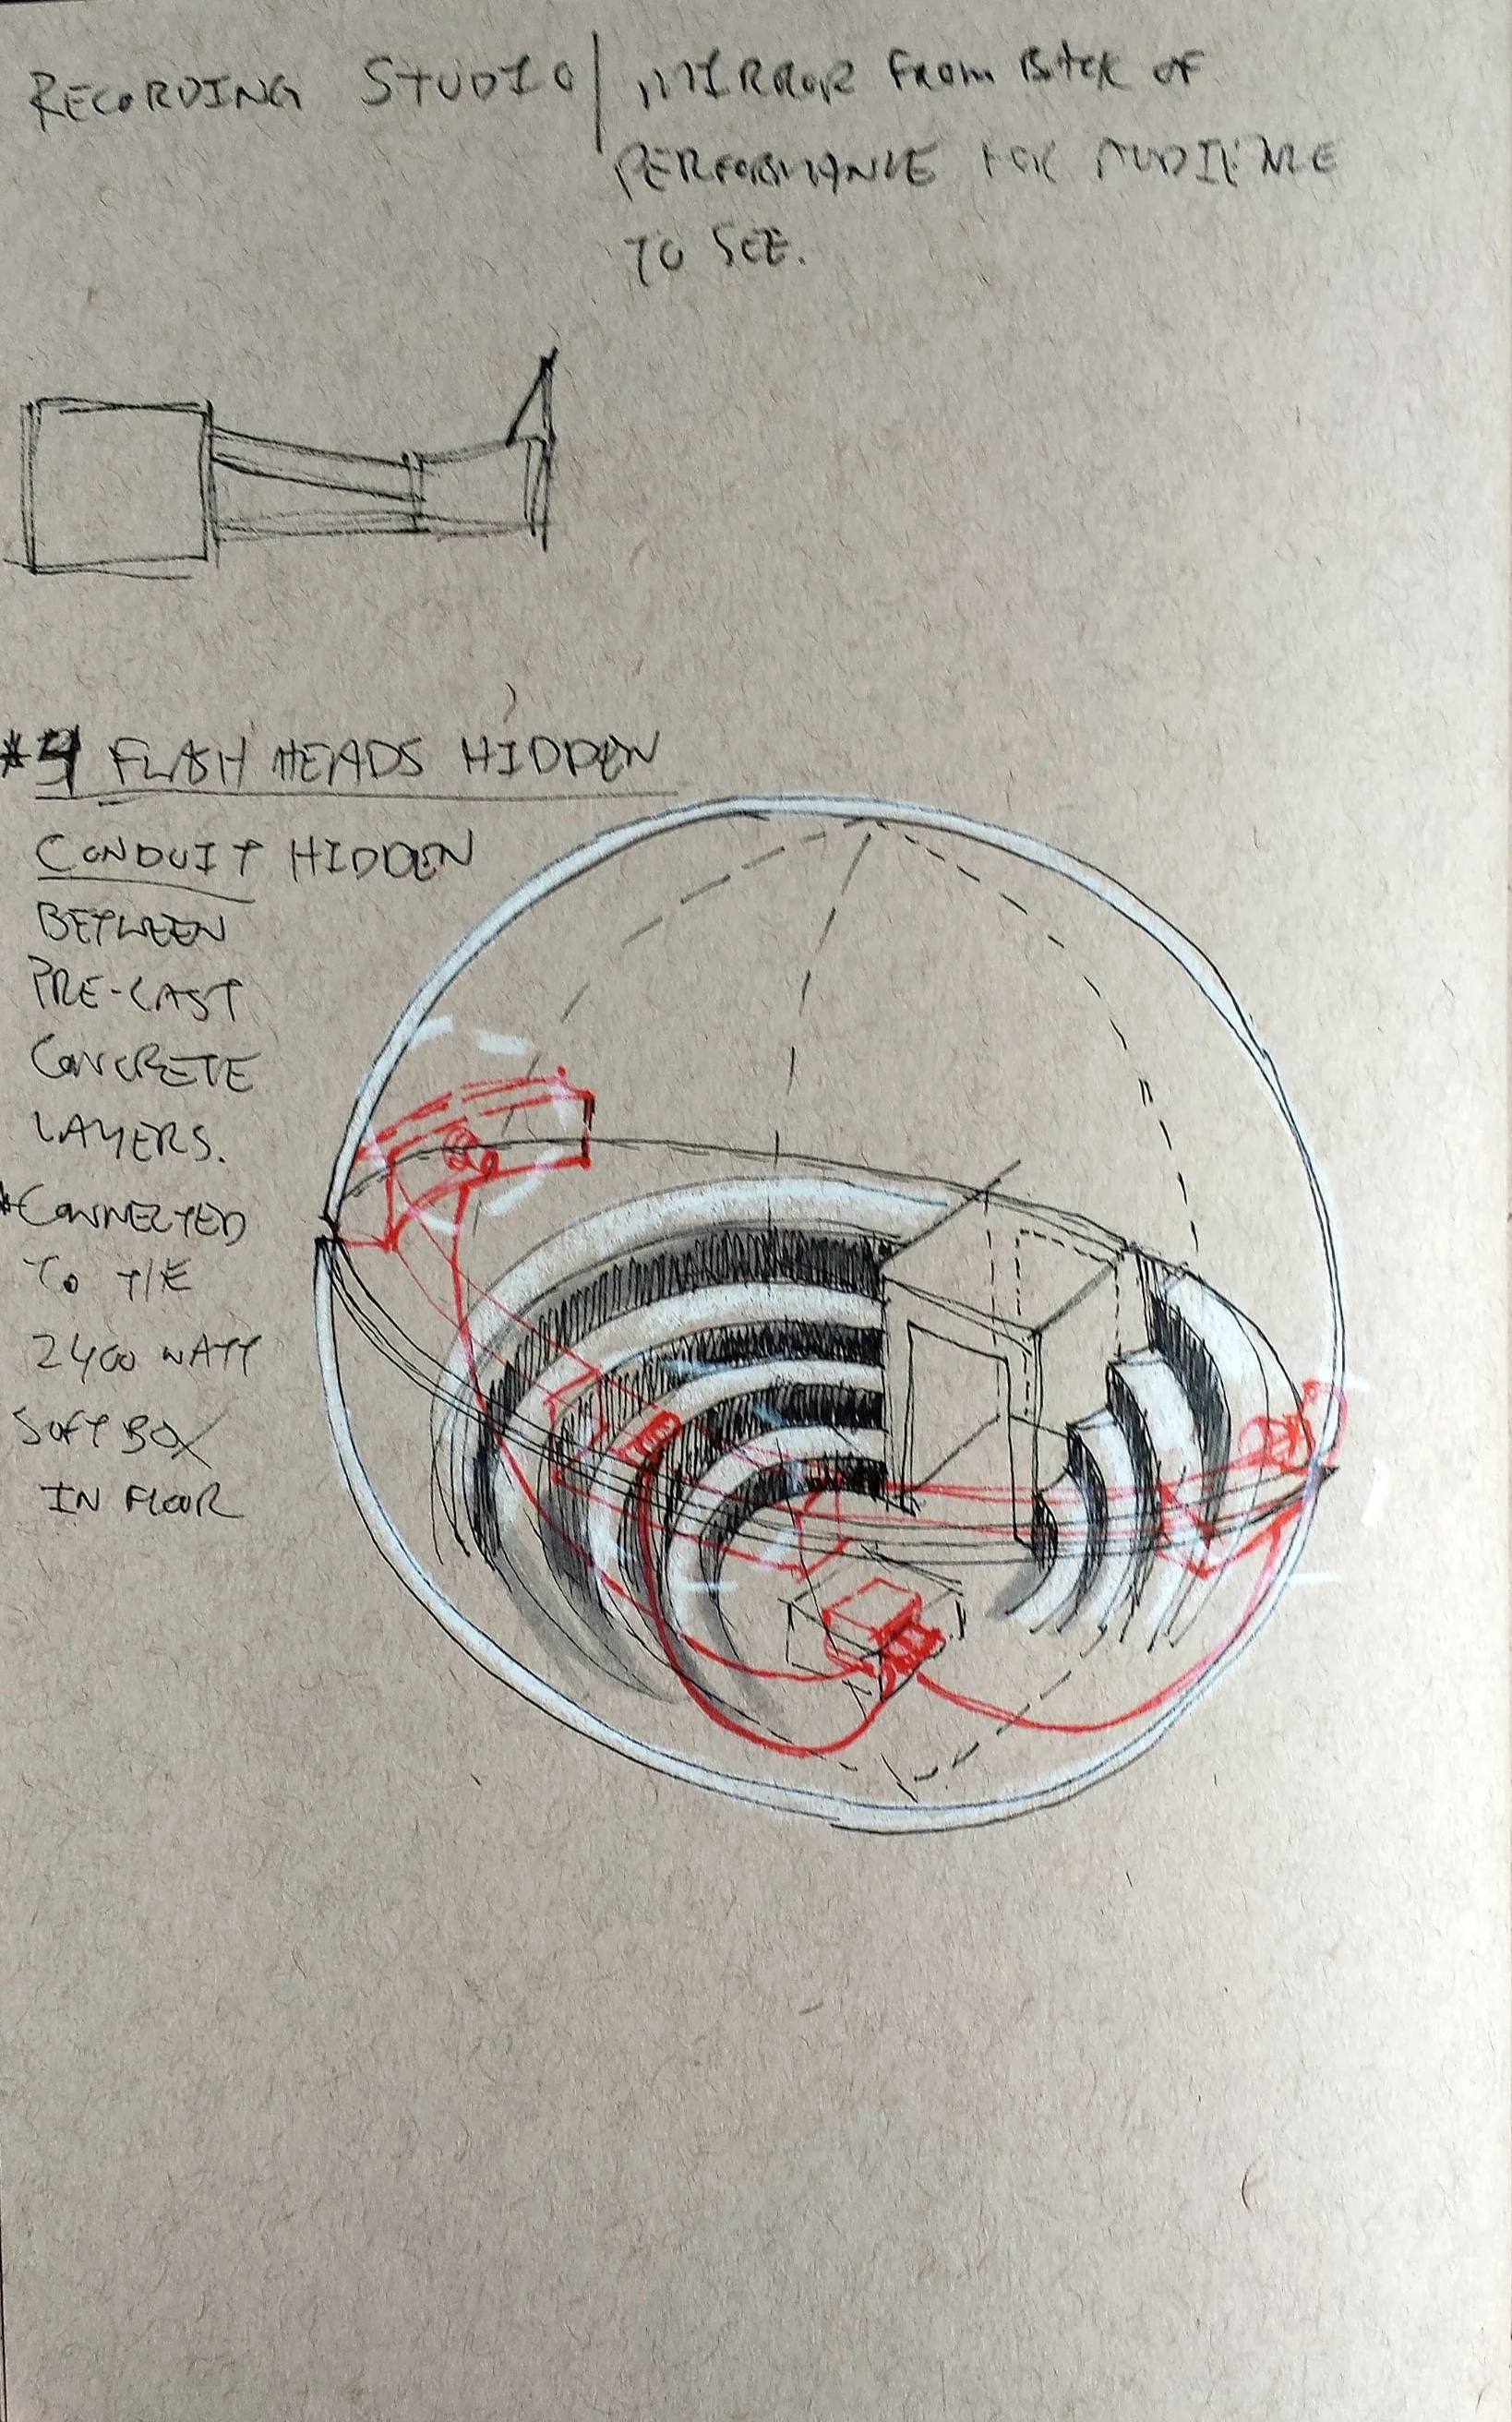 RECORDING STUDIO / MIRROR FROM BACK OF
PERFORMANCE FOR AUDIENCE
TO SEE.
*4 FLASH HEADS HIDDEN
CONDUIT HIDDEN
BETWEEN
PRE-CAST
CONCRETE
LAYERS.
*CONNECTED
TO THE
2400 WATT
SOFT BOX
IN FLOOR